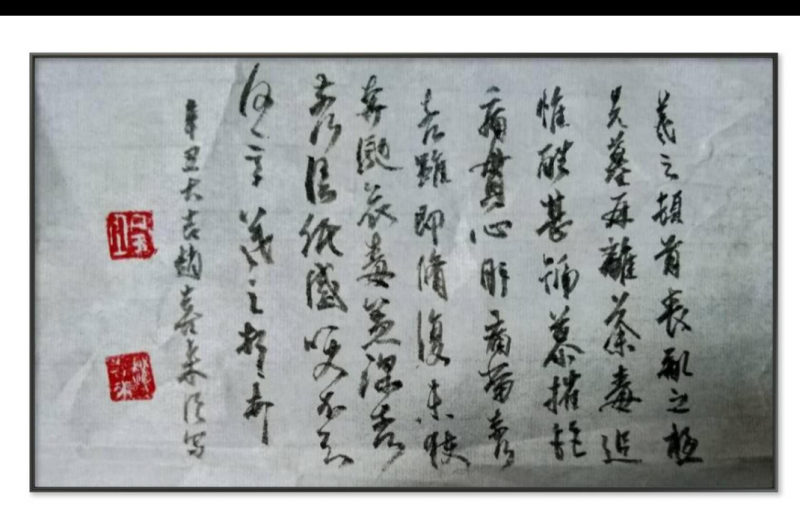 羲之頓首喪亂之極
先墓再離荼毒追
惟酷甚號慕摧絶
痛貫心肝痛當奈何
奈何雖即脩復未獲
奔馳哀毒益深奈何
奈何臨紙感哽不知
何言羲之頓首頓首
辛丑大吉趙喜来臨写